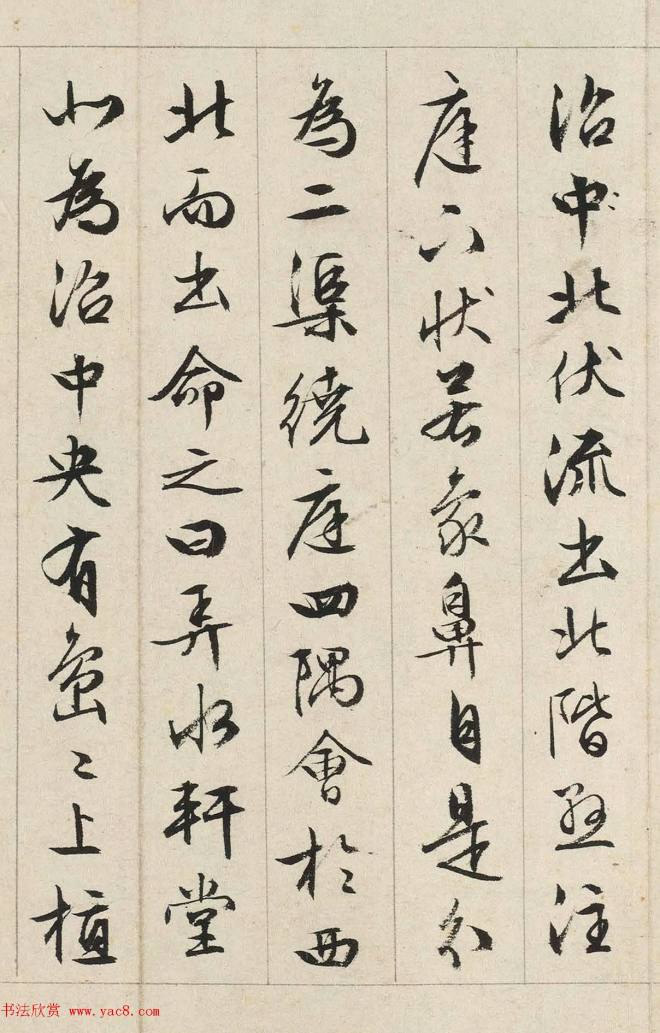 沼中北伏流出北階懸注
庭下狀若象鼻自是分
為二渠繞庭四隅會於西
北而出命之曰弄水軒堂
北為沼中央有島〻上植
书法欣赏 www.yac8.com